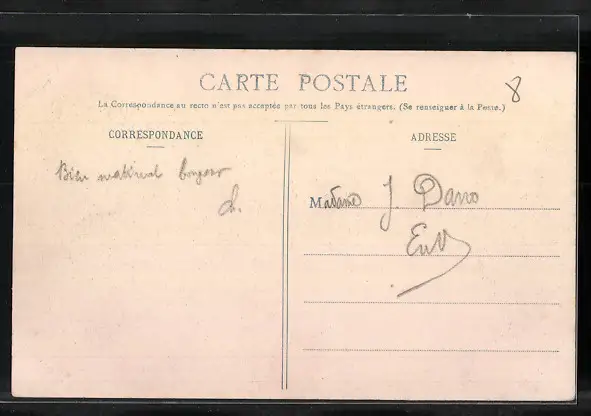 CARTE POSTALE
8
La Correspondance au recto n'est pas acceptée par tous les Pays étrangers. (Se renseigner à la Poste.)
CORRESPONDANCE
ADRESSE
Bien matinal bonjour
Madame J. Darro
E.V.